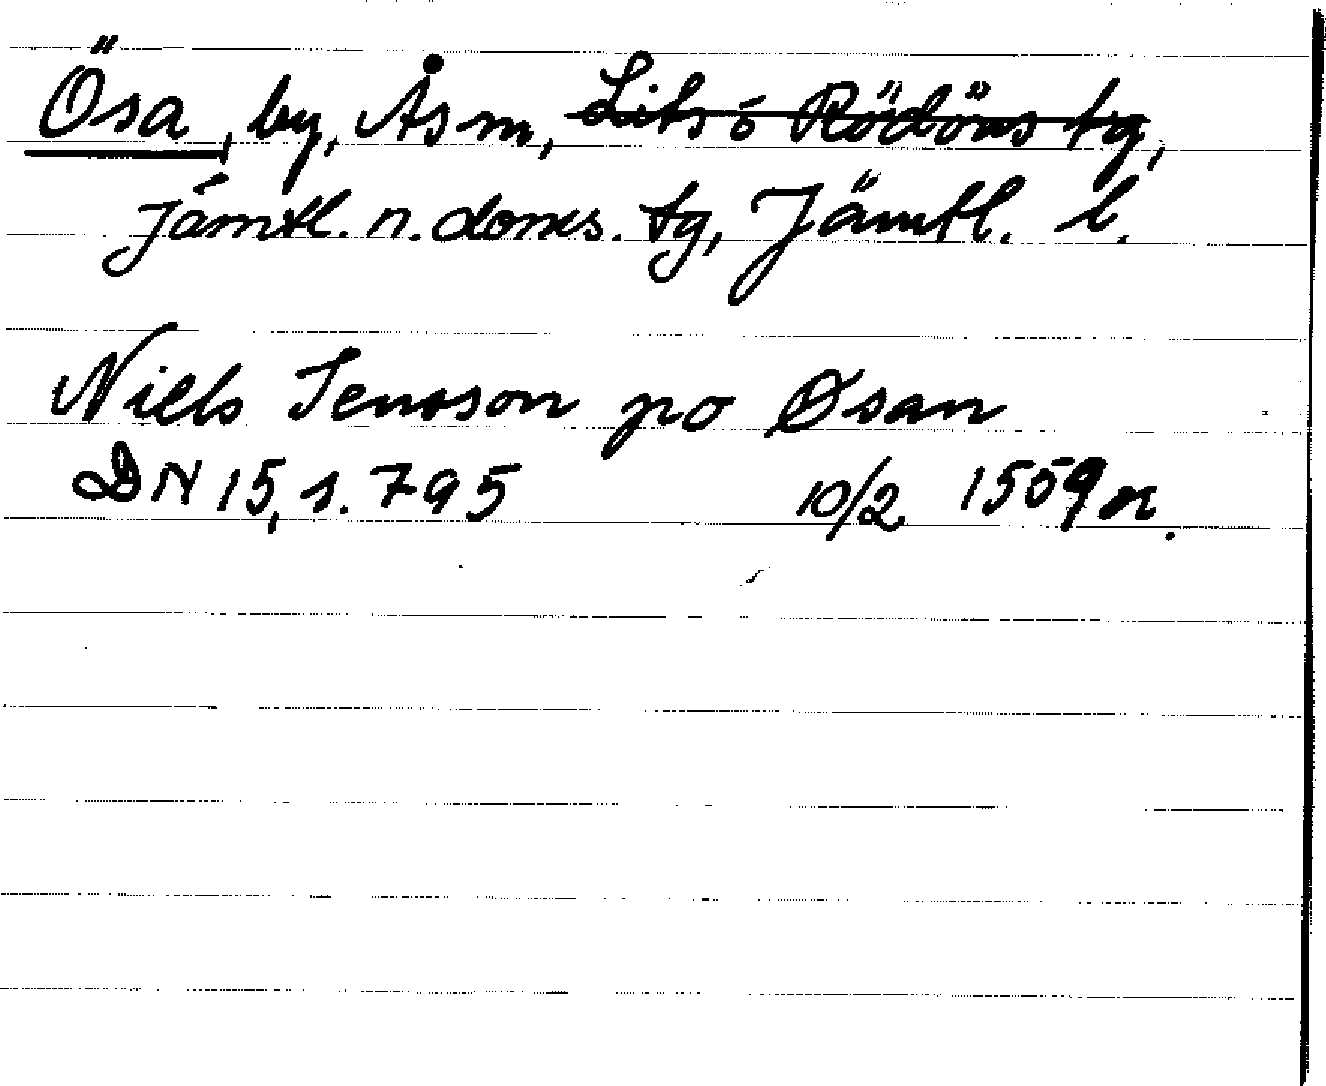 Ösa, by, Ås sn, Lits o Rödöns tg,
Jämtl. n. doms. tg, Jämtl. l.
Niels Jensson po Øsan
DN 15, s. 795 10/2 1509 or.